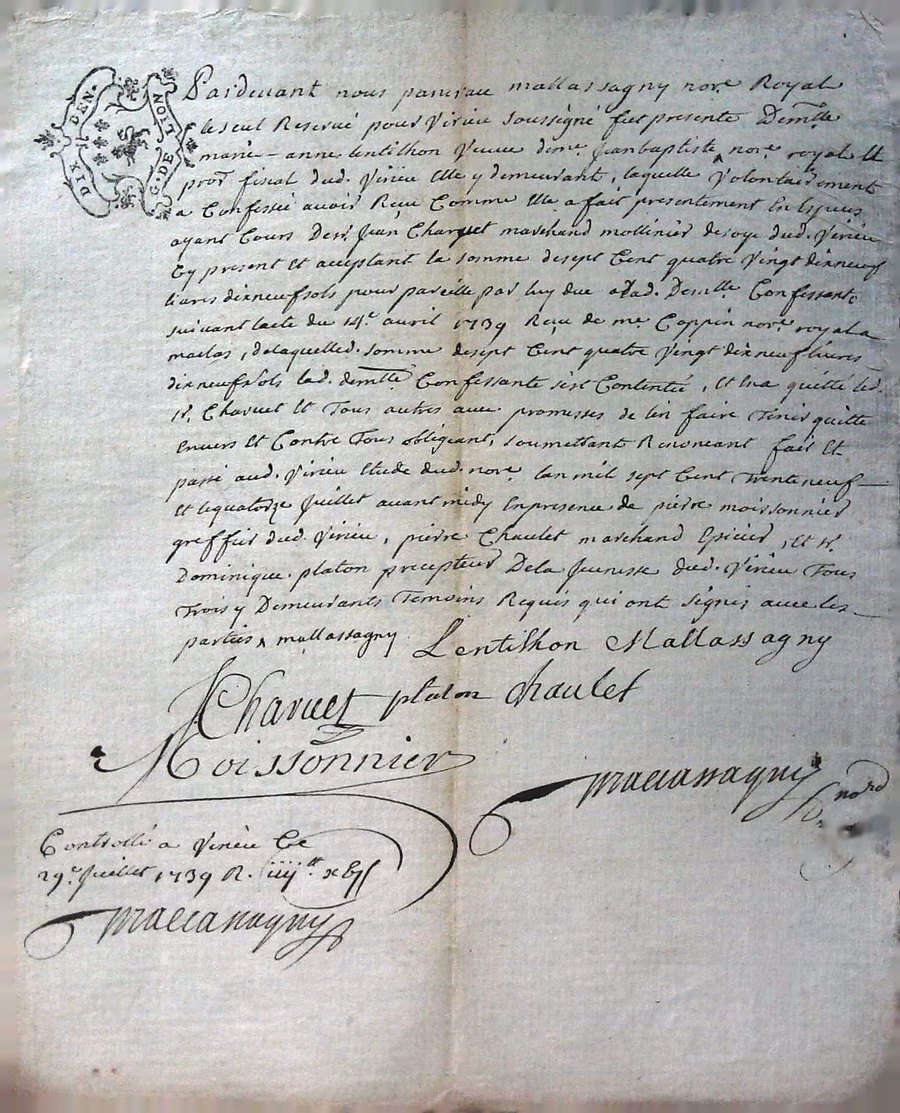 DIX DEN.
G. DE LION
Pardevant nous pancrace mallassagny nore. Royal
le seul Reservé pour Virieu soussigné fut presente Demlle
marie-anne Lentilhon Veuve de me. Jean baptiste nore. royal et
procr fiscal dud. Virieu Elle y demeurant, laquelle Volontairement
a Confessé avoir Receu Comme Elle a fait presentement En Especes
ayant Cours De sr. Jean Charvet marchand mollinier de soye dud. Virieu
Cy present et acceptant la somme de sept Cent quatre Vingt dixneuf
livres dixneuf sols pour pareille par luy due alad. Demlle Confessante
suivant lacte du 14e. avril 1739 Receu de me. Coppin nore. royal a
malas, de laquelle d. somme de sept Cent quatre Vingt dixneuf livres
dixneuf sols lad. demlle Confessante s'est Contentée, et En a quitté led.
sr. Charvet et Tous autres avec promesses de l'en faire Tenir quitte
Envers et Contre Tous obligeant, soumettant Renonceant fait et
passé aud. Virieu Etude dud. nore. lan mil sept Cent Trente neuf
et le quatorze Juillet avant midy En presence de pierre moissonnier
greffier dud. Virieu, pierre Chaulet marchand Epicier, et sr.
Dominique platon precepteur De la Jeunesse dud. Virieu Tous
Trois y Demeurants Temoins Requis qui ont signés avec les
parties mallassagny. Lentilhon Mallassagny
JCharvet platon Chaulet
Moissonnier
Mallassagny nore
Controllé a Virieu Ce
29e. Juillet 1739 R. iiij tt x
Mallassagny